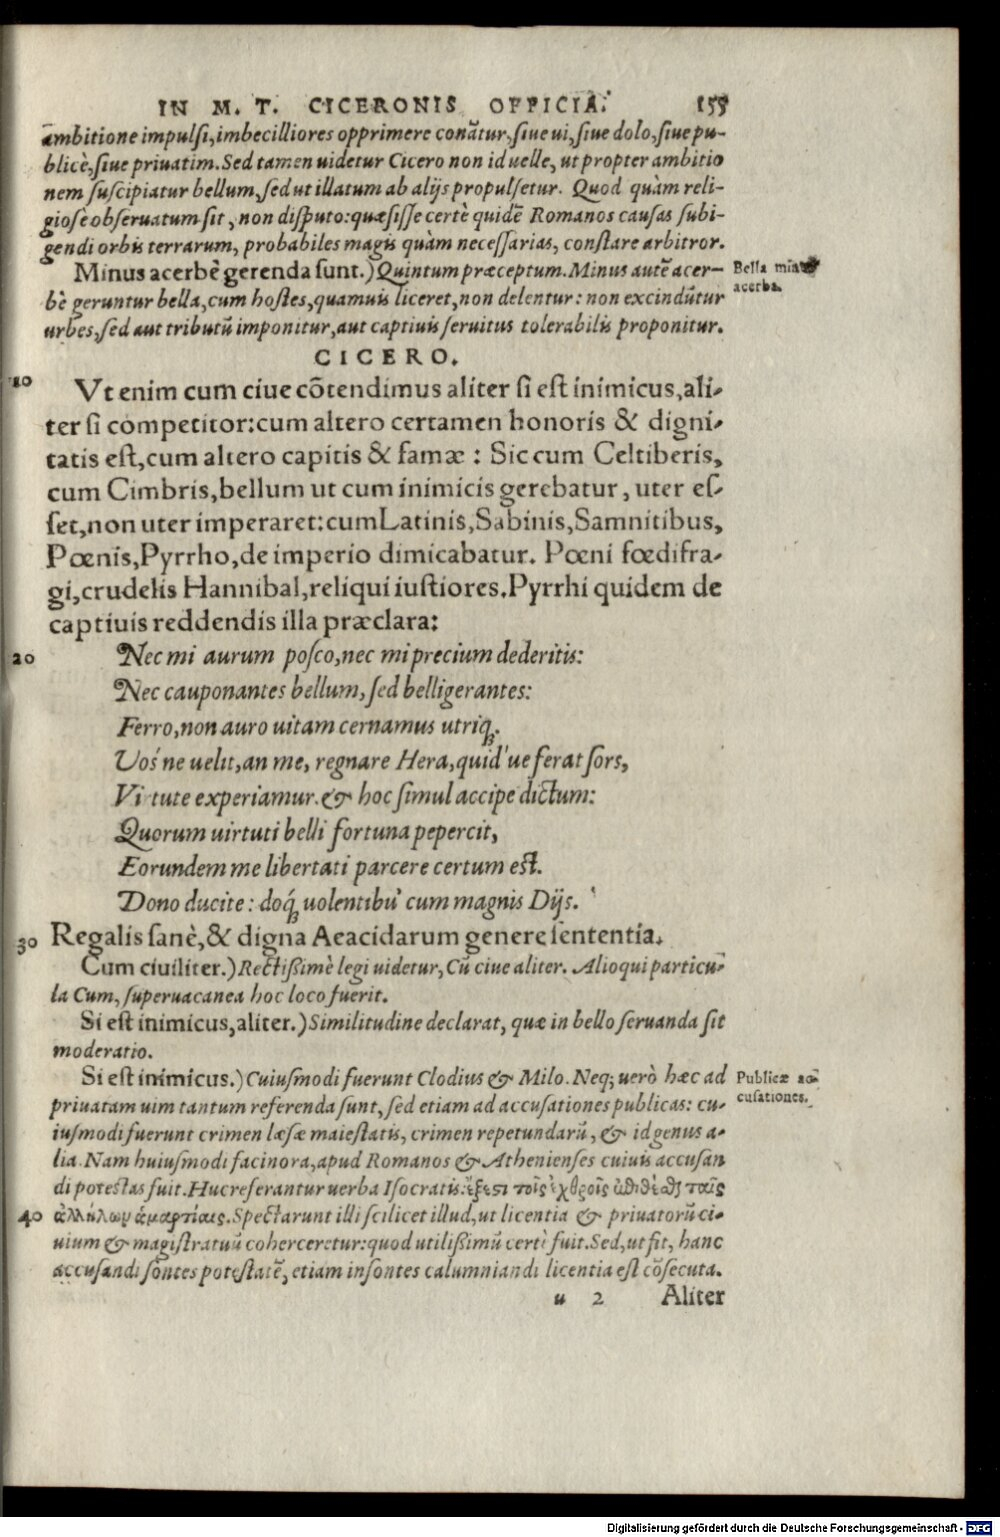 IN M. T. CICERONIS OFFICIA. 155
ambitione impulsi, imbecilliores opprimere conãtur, siue ui, siue dolo, siue pu-
blicè, siue priuatim. Sed tamen uidetur Cicero non id uelle, ut propter ambitio
nem suscipiatur bellum, sed ut illatum ab alijs propulsetur. Quod quàm reli-
giosè obseruatum sit, non disputo: quæsisse certè quidẽ Romanos causas subi-
gendi orbis terrarum, probabiles magis quàm necessarias, constare arbitror.
Minus acerbè gerenda sunt.) Quintum præceptum. Minus autẽ acer-
Bella min9
acerba.
bè geruntur bella, cum hostes, quamuis liceret, non delentur: non excindũtur
urbes, sed aut tributũ imponitur, aut captiuis seruitus tolerabilis proponitur.
CICERO.
10
Vt enim cum ciue cõtendimus aliter si est inimicus, ali-
ter si competitor: cum altero certamen honoris & digni-
tatis est, cum altero capitis & famæ: Sic cum Celtiberis,
cum Cimbris, bellum ut cum inimicis gerebatur, uter es-
set, non uter imperaret: cum Latinis, Sabinis, Samnitibus,
Pœnis, Pyrrho, de imperio dimicabatur. Pœni fœdifra-
gi, crudelis Hannibal, reliqui iustiores. Pyrrhi quidem de
captiuis reddendis illa præclara:
20
Nec mi aurum posco, nec mi precium dederitis:
Nec cauponantes bellum, sed belligerantes:
Ferro, non auro uitam cernamus utriq;.
Vos'ne uelit, an me, regnare Hera, quid'ue ferat sors,
Vi tute experiamur. & hoc simul accipe dictum:
Quorum uirtuti belli fortuna pepercit,
Eorundem me libertati parcere certum est.
Dono ducite: doq́; uolentibu' cum magnis Dijs.
30
Regalis sanè, & digna Aeacidarum genere sententia.
Cum ciuiliter.) Rectißimè legi uidetur, Cũ ciue aliter. Alioqui particu-
la Cum, superuacanea hoc loco fuerit.
Si est inimicus, aliter.) Similitudine declarat, quæ in bello seruanda sit
moderatio.
Si est inimicus.) Cuiusmodi fuerunt Clodius & Milo. Neq; uerò hæc ad
Publicæ ac-
cusationes.
priuatam uim tantum referenda sunt, sed etiam ad accusationes publicas: cu-
iusmodi fuerunt crimen læsæ maiestatis, crimen repetundarũ, & id genus a-
lia. Nam huiusmodi facinora, apud Romanos & Athenienses cuiuis accusan
di potestas fuit. Huc referantur uerba Isocratis: ἔξεστι τοῖς ἐχθροῖς ἐπιθέσθαι ταῖς
40
ἀλλήλων ἁμαρτίαις. Spectarunt illi scilicet illud, ut licentia & priuatorũ ci-
uium & magistratuũ coherceretur: quod utilißimũ certè fuit. Sed, ut fit, hanc
accusandi sontes potestatẽ, etiam insontes calumniandi licentia est cõsecuta.
u 2 Aliter
Digitalisierung gefördert durch die Deutsche Forschungsgemeinschaft - DFG